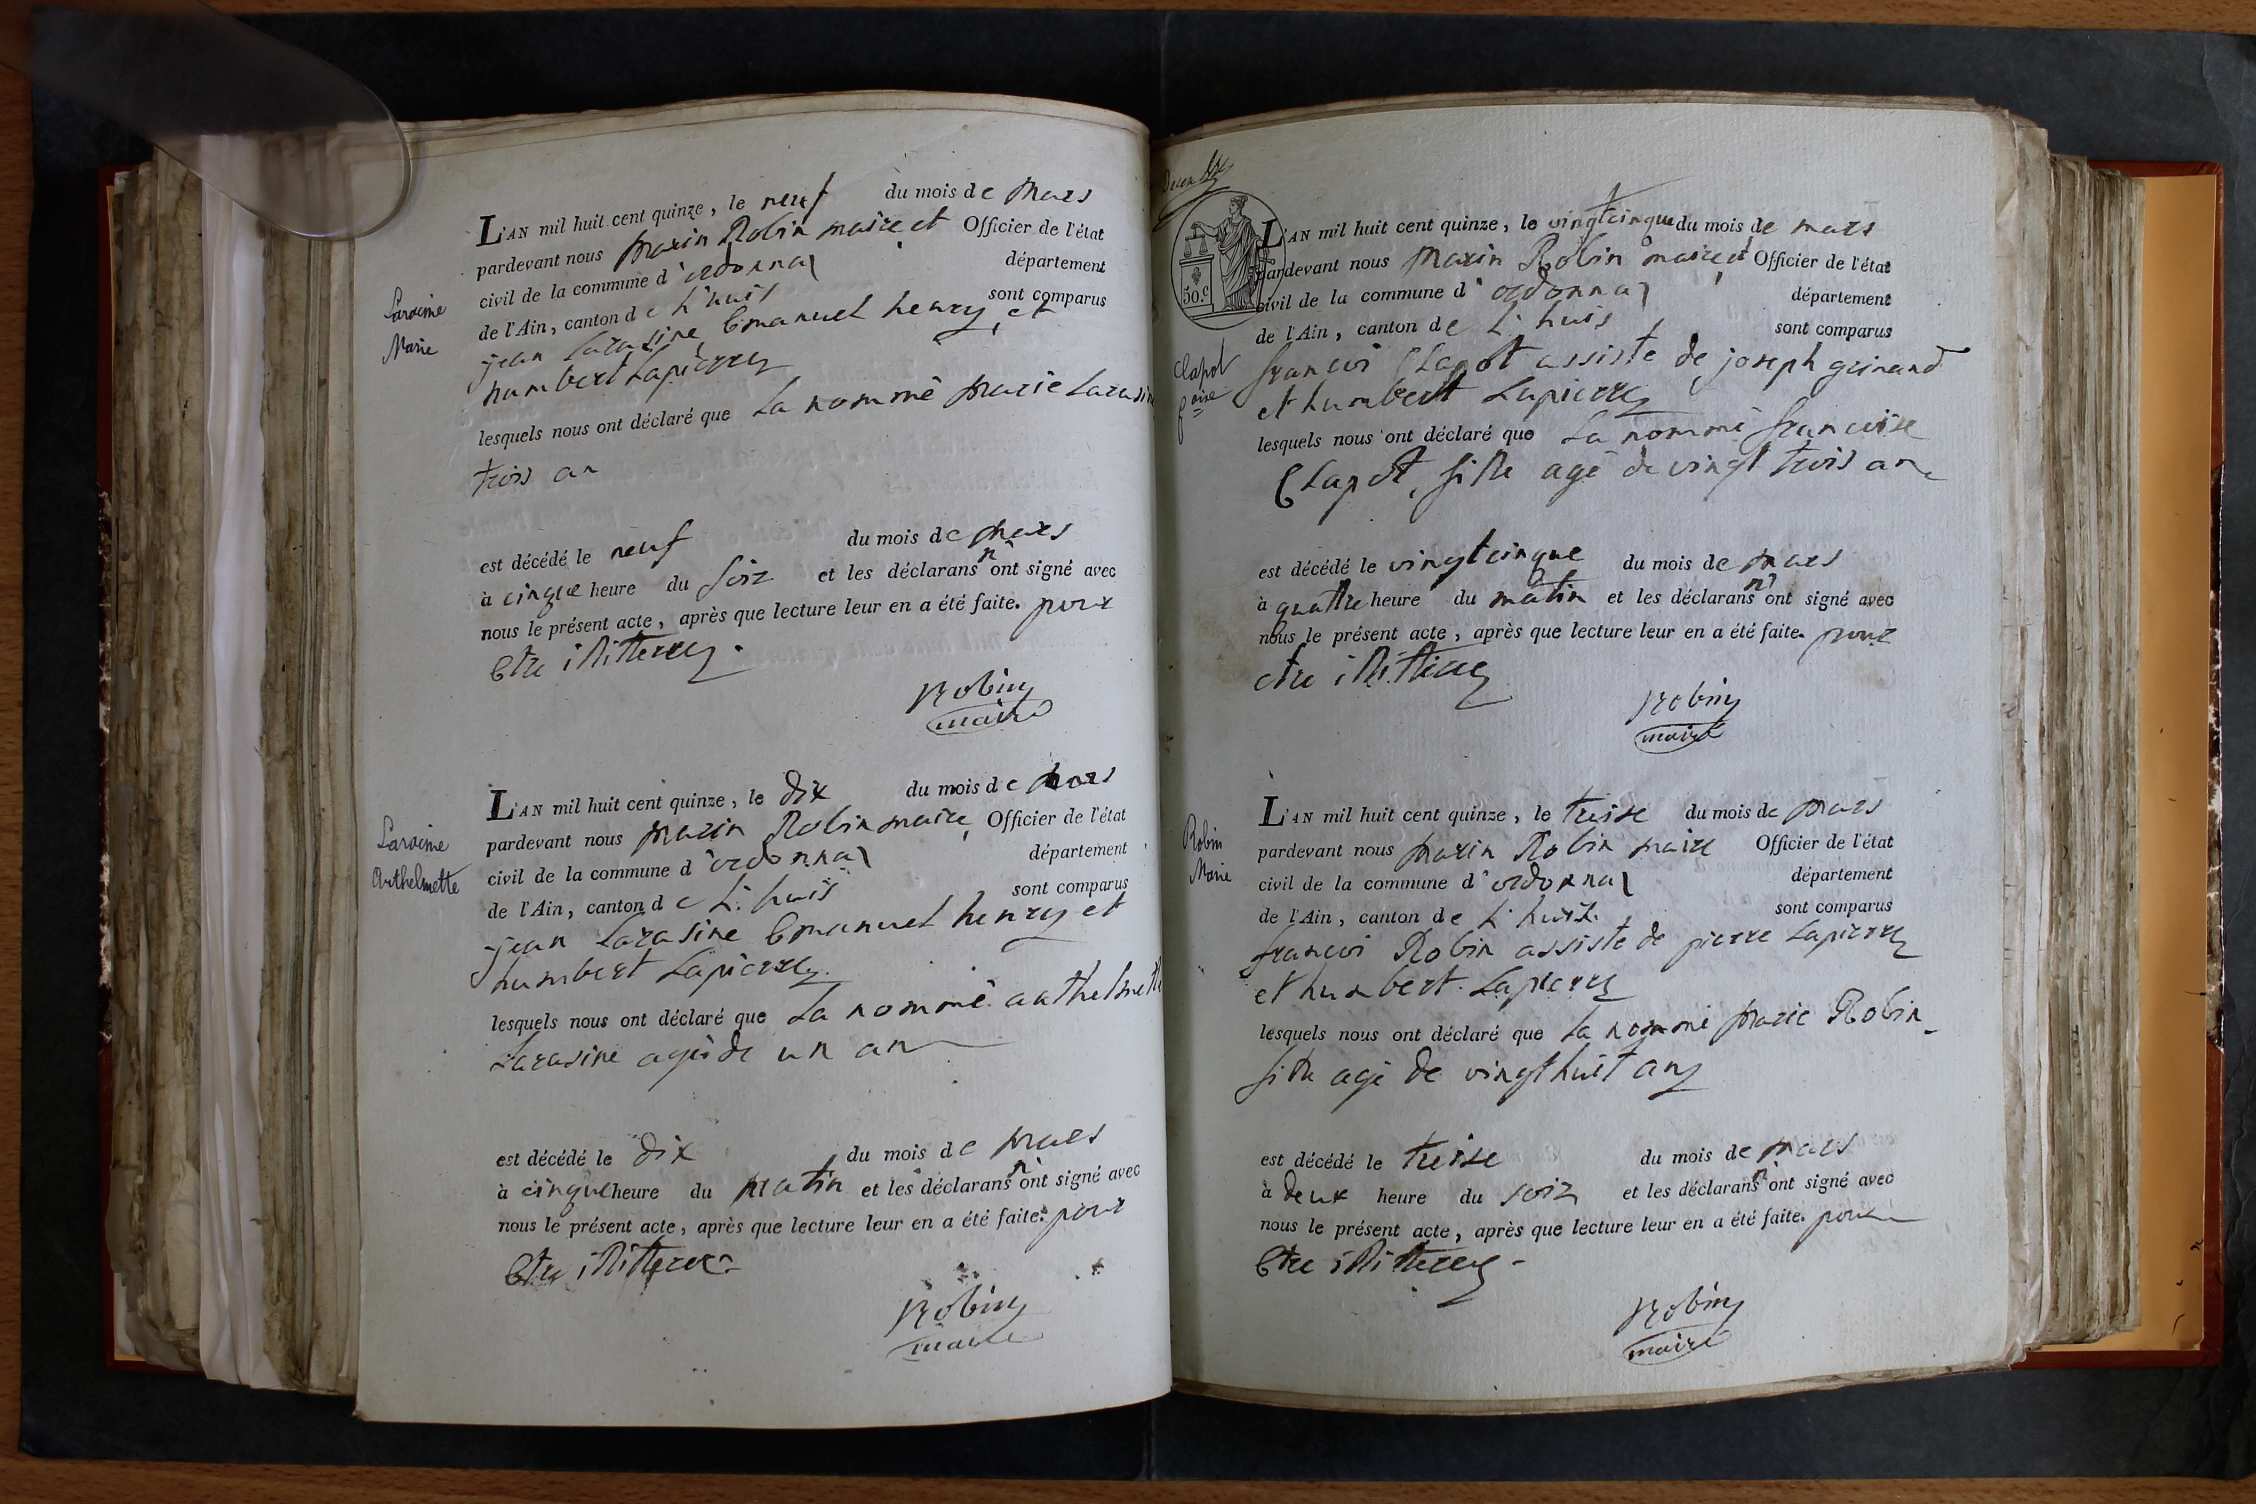 L'AN mil huit cent quinze, le neuf du mois de mars
pardevant nous marin Robin maire et Officier de l'état
civil de la commune d'ordonnaz département
de l'Ain, canton de L'huis sont comparus
jean Larasine Emanuel henry, et
humbert Lapierre
lesquels nous ont déclaré que La nommé marie Larasine
trois an
Marie
est décédé le neuf du mois de mars
à cinque heure du soir et les déclarans n'ont signé avec
nous le présent acte, après que lecture leur en a été faite. pour
Etre illiterez.
Robin
maire
L'AN mil huit cent quinze, le dix du mois de mars
pardevant nous marin Robin maire, Officier de l'état
civil de la commune d'ordonnaz département
de l'Ain, canton de L'huis sont comparus
jean Larasine Emanuel henry et
humbert Lapierre.
lesquels nous ont déclaré que La nommé anthelmette
Larasine agéé de un an
Anthelmette
est décédé le dix du mois de mars
à cinque heure du matin et les déclarans n'ont signé avec
nous le présent acte, après que lecture leur en a été faite. pour
Etre illiterez
Robin
maire
50.c
L'AN mil huit cent quinze, le vingtcinque du mois de mars
pardevant nous marin Robin maire et Officier de l'état
civil de la commune d'ordonnaz département
de l'Ain, canton de L'huis sont comparus
francoi Clapot assisté de joseph guinand
et humbert Lapierre
lesquels nous ont déclaré que La nommé francoise
Clapot, fille agé de vingt trois an
Clapot
foise
est décédé le vingtcinque du mois de mars
à quattre heure du matin et les déclarans n'ont signé avec
nous le présent acte, après que lecture leur en a été faite. pour
etre illiterez
Robin
maire
L'AN mil huit cent quinze, le treise du mois de mars
pardevant nous marin Robin maire Officier de l'état
civil de la commune d'ordonnaz département
de l'Ain, canton de L'huis. sont comparus
francoi Robin assisté de pierre Lapierre
et humbert Lapierre
lesquels nous ont déclaré que La nommé marie Robin
fille agé de vingt huit ans
Robin
Marie
est décédé le treise du mois de mars
à deux heure du soir et les déclarans n'ont signé avec
nous le présent acte, après que lecture leur en a été faite. pour
Etre illiterez
Robin
maire